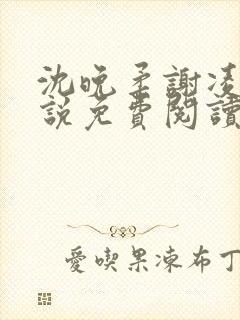 沈晚柔謝凌
說免費閱讀
愛喫果凍布丁